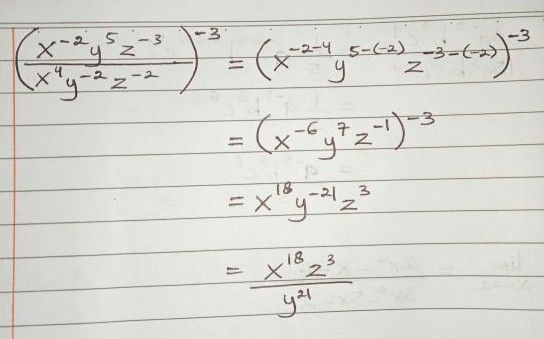 (x⁻²y⁵z⁻³ / x⁴y⁻²z⁻²)⁻³ = (x⁻²⁻⁴ y⁵⁻⁽⁻²⁾ z⁻³⁻⁽⁻²⁾)⁻³
= (x⁻⁶y⁷z⁻¹)⁻³
= x¹⁸y⁻²¹z³
= x¹⁸z³ / y²¹